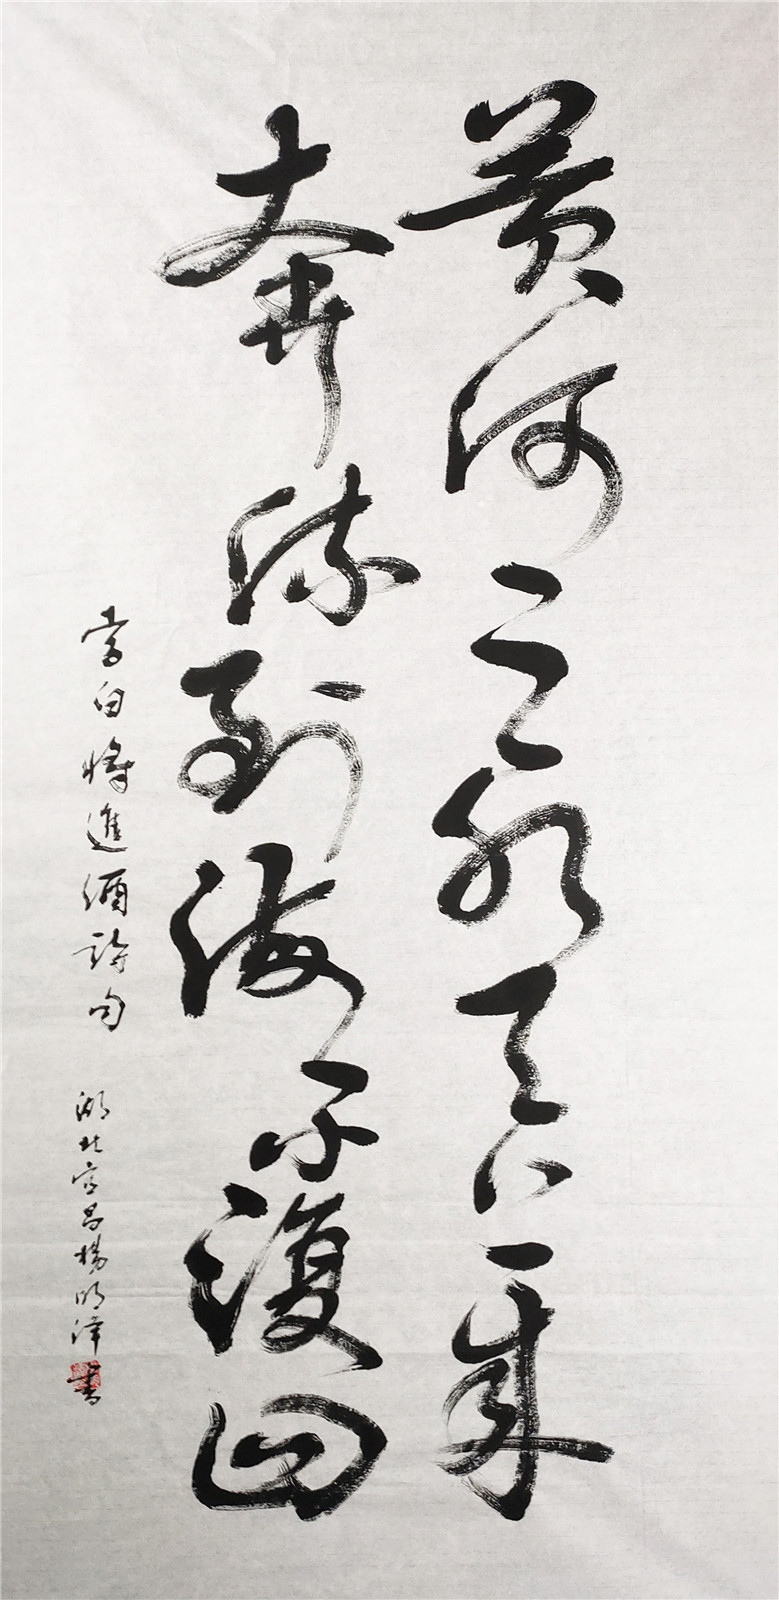 黄河之水天上来
奔流到海不復回
李白將進酒詩句 湖北宜昌楊明澤書